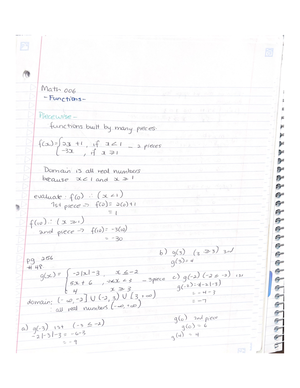 Math 006
- Functions -
Piecewise -
functions built by many pieces
f(x) = { 2x + 1 , if x < 1 - 2 pieces
-3x , if x ≥ 1
Domain is all real numbers
because x < 1 and x ≥ 1
evaluate : f(0) : (x < 1)
1st piece → f(0) = 2(0)+1
= 1
f(10) : (x ≥ 1)
2nd piece → f(10) = -3(10)
= -30
pg. 256
g(x) = { -2|x| - 3 , x ≤ -2
5x + 6 , -2 < x < 3 - 3 piece
4 , x ≥ 3
domain: (-∞, -2] ∪ (-2, 3) ∪ (3, +∞)
all real numbers (-∞, ∞)
a) g(-3) 1st (-3 ≤ -2)
-2|-3| -3 = -6-3
= -9
b) g(3) (3 ≥ 3) 3rd
g(3) = 4
c) g(-2) (-2 ≤ -2) 1st
= -4 -3
= -7
g(0) 2nd piece
g(0) = 6
g(4) = 4